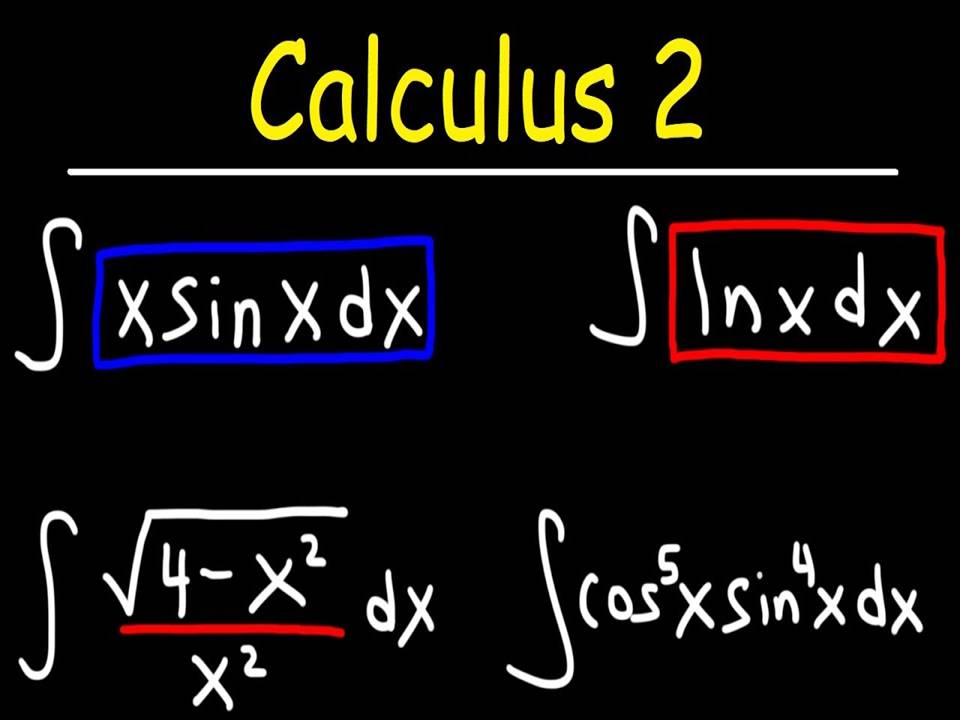 Calculus 2
∫ x sin x dx
∫ ln x dx
∫ √(4 - x²) / x² dx
∫ cos⁵x sin⁴x dx